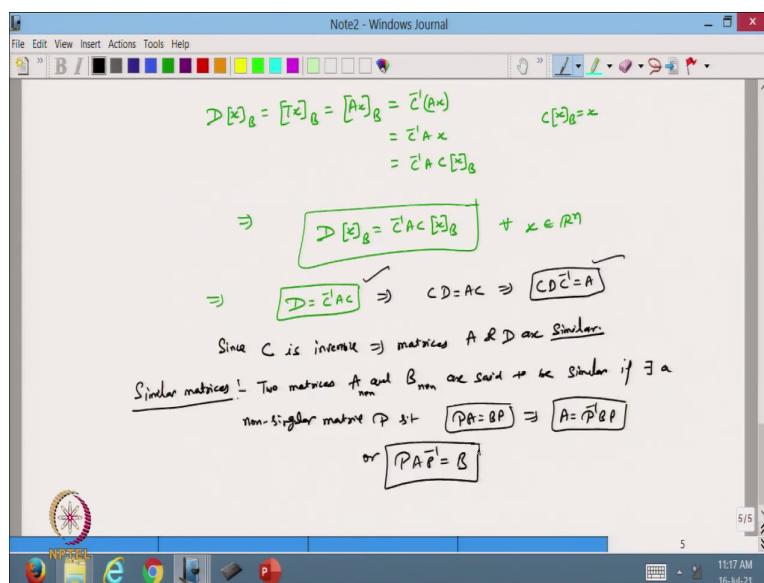 Note2 - Windows Journal
File Edit View Insert Actions Tools Help
B I
D[x]_B = [Tx]_B = [Ax]_B = C⁻¹(Ax)    C[x]_B = x
= C⁻¹Ax
= C⁻¹AC[x]_B
⇒ D[x]_B = C⁻¹AC[x]_B ∀ x ∈ ℝⁿ
⇒ D = C⁻¹AC ✓ ⇒ CD = AC ⇒ CDC⁻¹ = A ✓
Since C is invertible ⇒ matrices A & D are Similar.
Similar matrices :- Two matrices A_{n×n} and B_{n×n} are said to be similar if ∃ a
non-singlar matrix P s.t PA = BP ⇒ A = P⁻¹BP
or PAP⁻¹ = B
5/5
5
NPTEL
11:17 AM
16-Jul-21